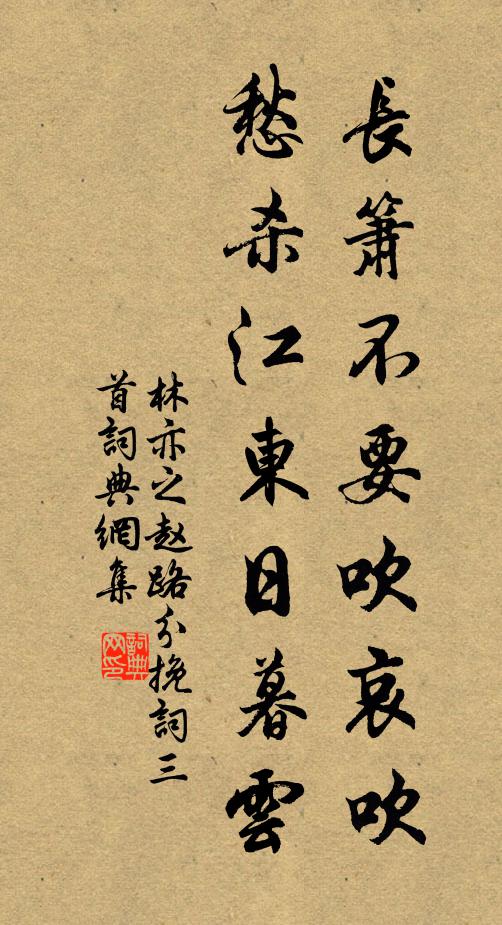 長簫不要吹哀吹
愁杀江東日暮雲
林亦之赵路分挽詞三
首詞典網集
詞典网印